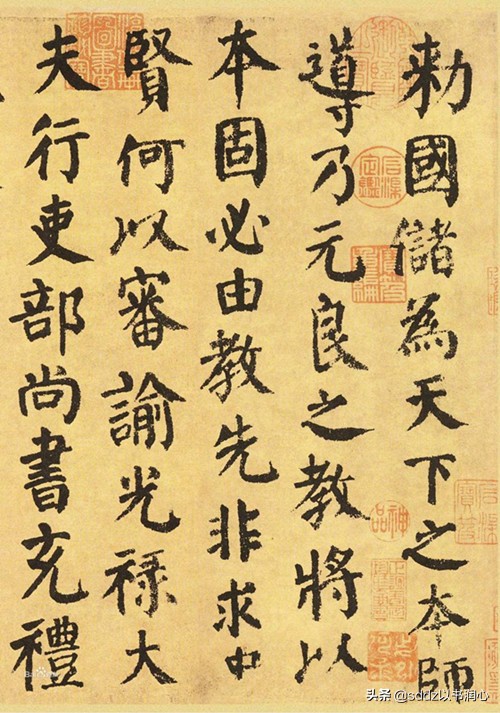 勅國儲為天下之本師
導乃元良之教將以
本固必由教先非求中
賢何以審諭光祿大
夫行吏部尚書充禮
神品
头条 @sddz以书润心